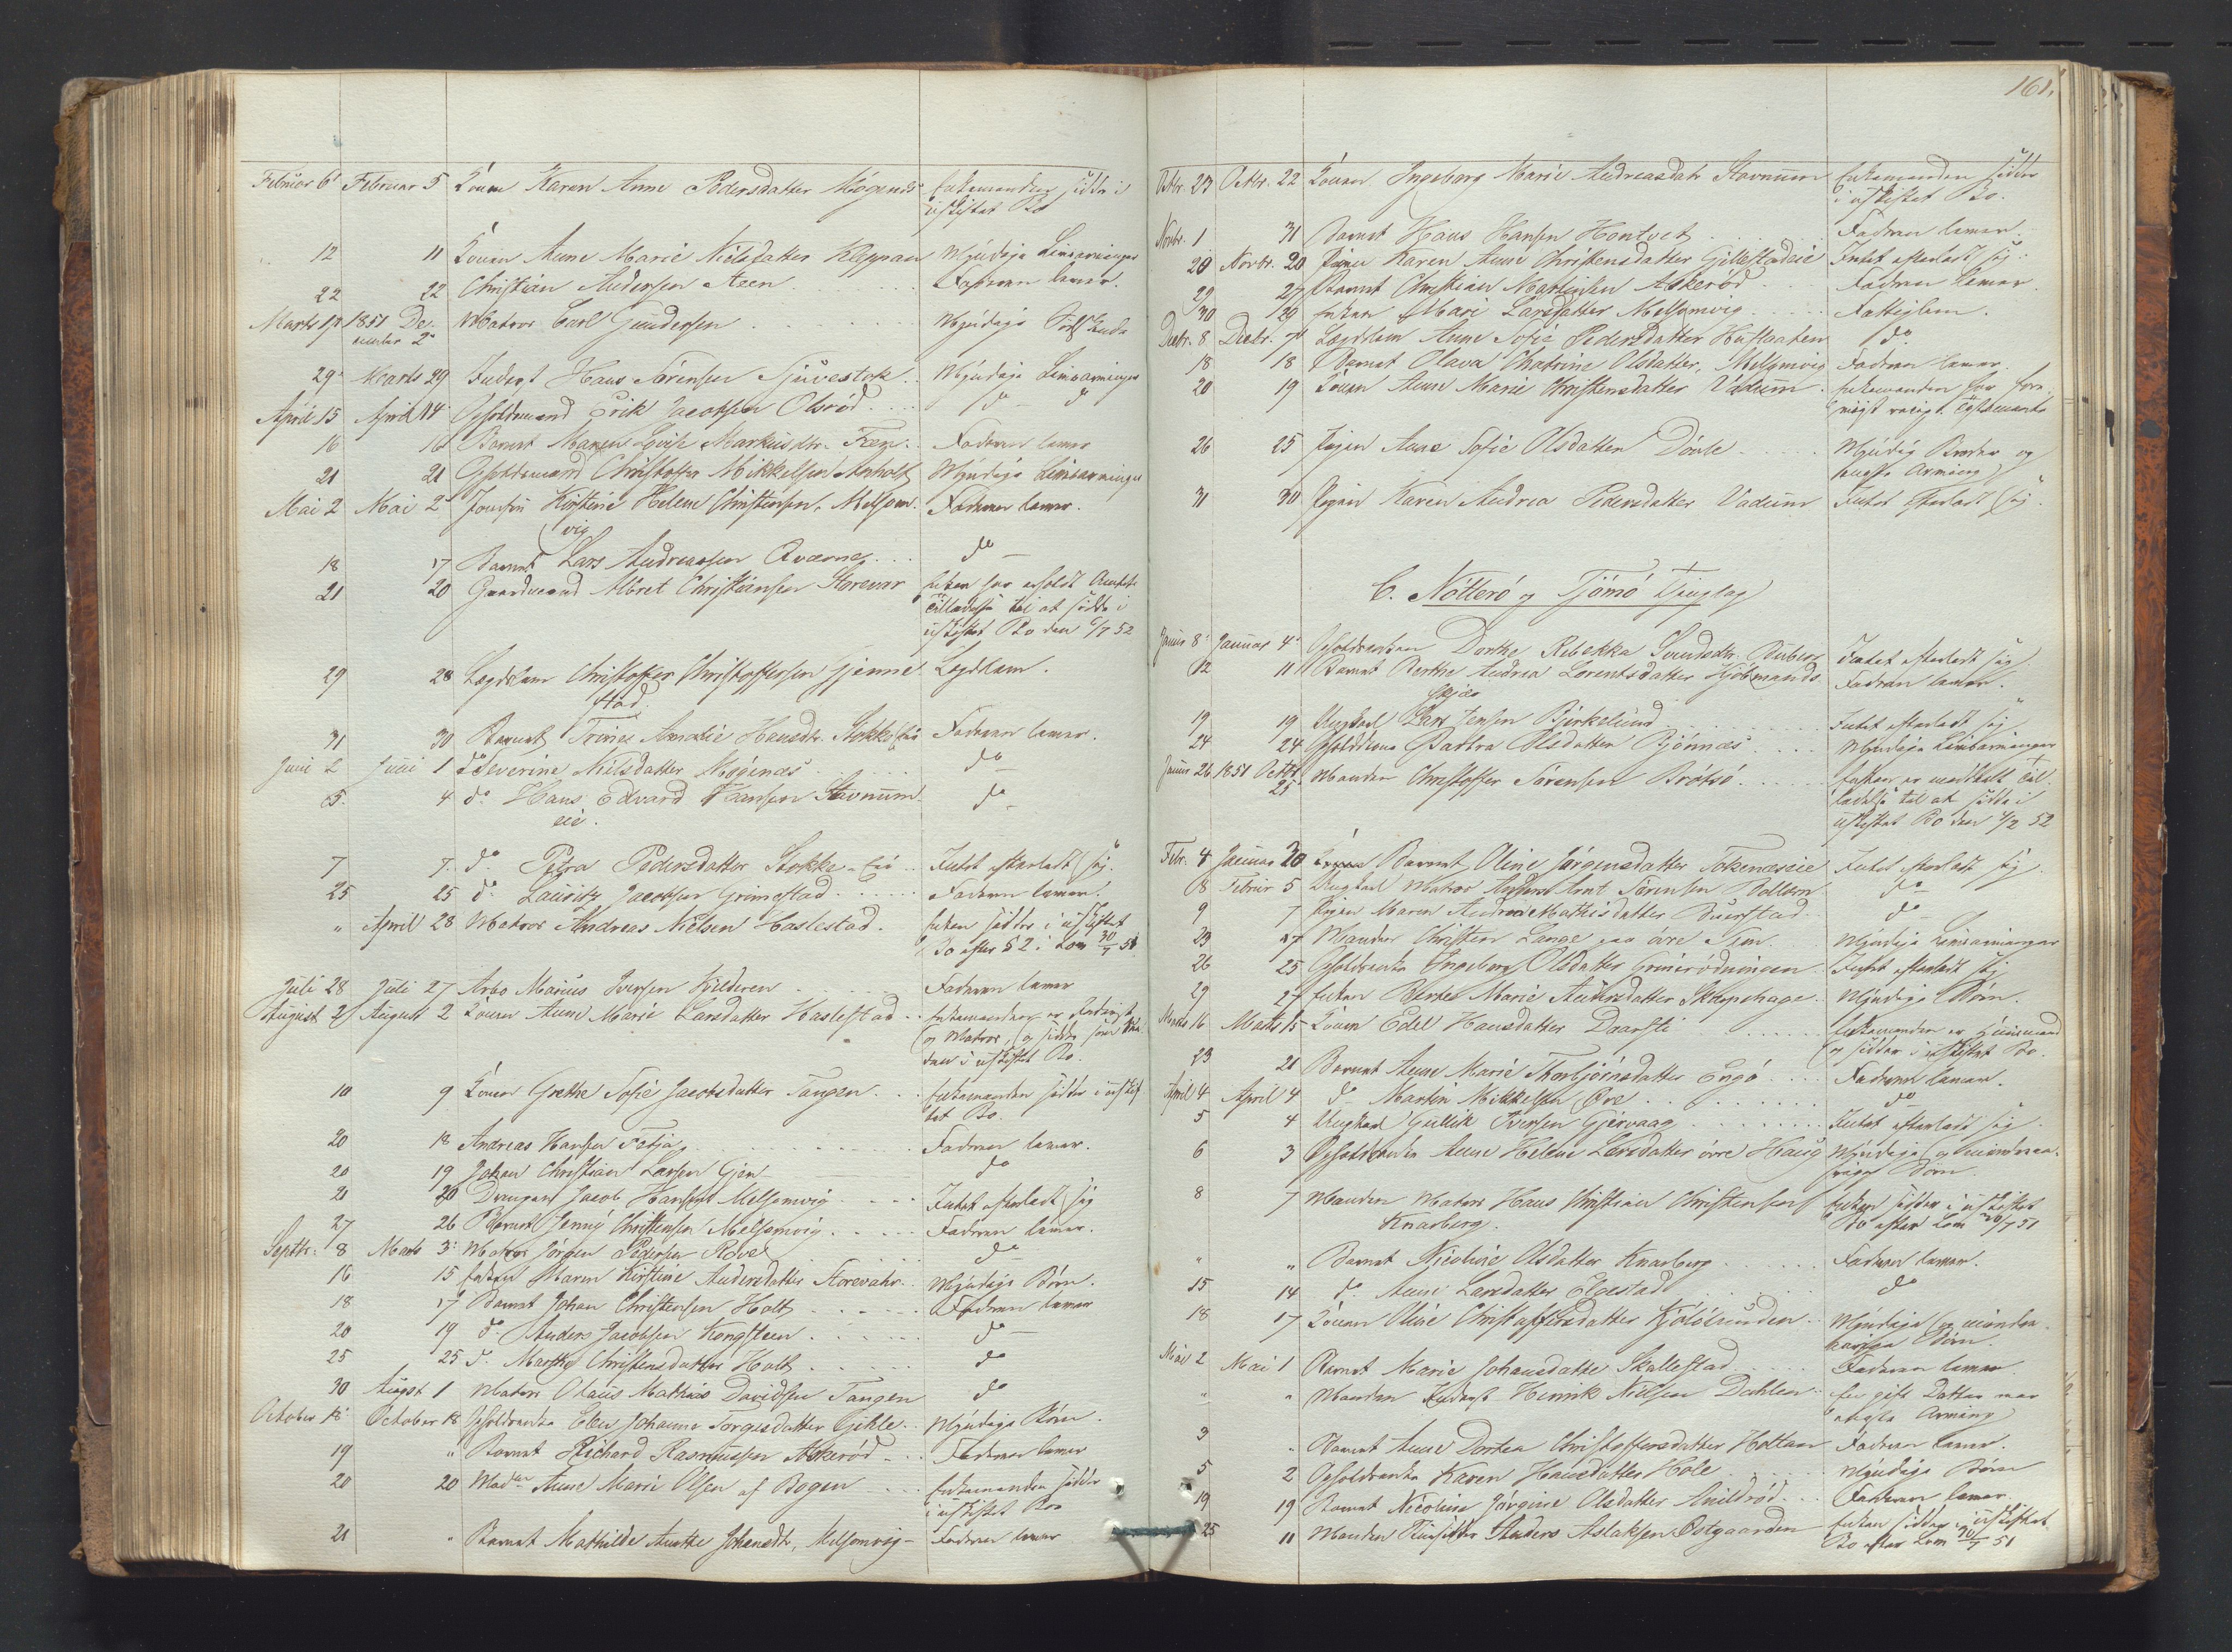 Februar 6 Februar 5 Konen Karen Anne Pedersdatter Møgenæs Enkemanden sidder i
uskiftet Bo
12 11 Konen Anne Marie Nielsdatter Kleppan Myndige Livsarvinger
22 22 Christian Andersen Steen Faderen lever.
Marts 17 1851 De- Matros Carl Gundersen Myndige
cember 2
29 Marts 29 Inderst Hans Sørensen Myndige Livsarvinger
April 15 April 14 Opholdsmand Erik Jacobsen Olsrød do do
16 16 Barnet Maren Lovise Markusdtr. Fren Faderen lever
21 21 Opholdsmand Christoffer Mikkelsen Myndige Livsarvinger
Mai 2 Mai 2 Jomfru Kirstine Helene Christensen, Melsom- Faderen lever.
vig
18 17 Barnet Lars Andreassen Qværne do
21 20 Gaardmand Albret Christiansen Storevar Enken har erholdt Amtets
Tilladelse til at sidde i
uskiftet Bo den 6/7 52
29 28 Lægdslem Christoffer Christoffersen Gjenne- Lægdslem.
stad.
31 30 Barnet Trine Amalie Hansdtr. Stokke Eie Faderen lever.
Juni 2 Juni 1 do Severine Nielsdatter Møgenæs do
5. 4 do Hans Edvard Hansen Stavnum- do
eie.
7 7. do Petra Pedersdatter Stokke-Eie Intet efterladt sig.
25 25 do Lauritz Jacobsen Grimestad Faderen lever.
" April 28 Matros Andreas Nielsen Haslestad. Enken sidder i uskiftet
Bo efter § 2 i Lov 30/7 51
Juli 28 Juli 27 Arbo Marius Iversen Kilderen Faderen lever
August 2 August 2 Konen Anne Marie Larsdatter Haslestad Enkemanden er Inderst
og Matros, og sidder som
i uskiftet Bo.
10 9 Konen Grethe Sofie Jacobsdatter Tangen Enkemanden sidder i uskif-
tet Bo.
20 18 Andreas Hansen Faderen lever.
20 19 Johan Christian Larsen Gjen do
21 20 Drengen Jacob Hansen Melsomvig Intet efterladt sig
27 26 Barnet Jenny Christensen Melsomvig Faderen lever.
Septbr. 8 Marts 3 Matros Jørgen Pedersen Røvel do
16 15 Enken Maren Kirstine Andersdatter Storevahr. Myndige Børn.
18 17 Barnet Johan Christensen Holt Faderen lever
20 19 do Anders Jacobsen Kongsteen do
25 25 do Marthe Christensdatter Holt do
30 August 1 Matros Olaus Mathias Davidsen Tangen do
October 18 October 18 Opholdsenke Elen Johanne Torgersdatter Gjekle Myndige Børn.
19 " Barnet Richard Rasmussen Askerød Faderen lever
20 20 Madm Anne Marie Olsen af Bogen Enkemanden sidder
i uskiftet Bo
21 " Barnet Mathilde Anette Johansdtr. Melsomvig Faderen lever
161.
Octbr. 23 Octbr. 22 Konen Ingeborg Marie Andreasdatr Stavnum Enkemanden sidder
i uskiftet Bo.
Novbr. 1 31 Barnet Hans Hansen Hontvet Faderen lever.
20 Novbr. 20 Pigen Karen Anne Christensdatter Gillestadeie Intet efterladt sig.
29 27 Barnet Christian Martinsen Askerød Faderen lever.
30 29 Enken Mari Larsdatter Melsomvig Fattiglem.
Decbr. 8 Decbr. 7 Lægdslem Anne Sofie Pedersdatter do
18 18 Barnet Olava Chatrine Olsdatter, Melsomvig Faderen lever.
20 19 Konen Anne Marie Christensdatter Vadum Enkemanden har
Testamente
26 25 Pigen Anne Sofie Olsdatter Døvle Myndig Broder og
eneste Arving
31 30 Pigen Karen Andrea Pedersdatter Vadum Intet efterladt sig.
C. Nötterö og Tjömö Tinglag
Januar 8 Januar 4 Opholdsenken Dorthe Rebekka Intet efterladt sig
12 11 Barnet Berthe Andrea Lorentsdatter Kjøbmands- Faderen lever.
skjær
19 19 Ungkarl Lars Jensen Bjerkelund Intet efterladt sig
24 24 Opholdskone Barbra Olsdatter Bjönnæs Myndige Livsarvinger
Januar 26 1851 Octbr Manden Christoffer Sørensen Brøtsö Enken er meddeelt Til-
25 ladelse til at sidde i
uskiftet Bo den 4/2 52
Febr. 4 Januar 30 Barnet Oline Jørgensdatter Intet efterladt sig.
8 Februar 5 Ungkarl Matros Arnt Sørensen Bolleren do
9 7 Pigen Maren Andrea Mathisdatter Buerstad do
23 17 Manden Christen Lange paa övre Tem Myndige Livsarvinger
26 25 Opholdsenke Ingeborg Olsdatter Grinerødningen Intet efterladt sig
29 27 Enken Berthe Marie Andersdatter Skarphage Myndige Børn.
Marts 16 Marts 15 Konen Edel Hansdatter Enkemanden er
og sidder i uskiftet Bo.
23 21 Barnet Anne Marie Thorbjørnsdatter Engø Faderen lever.
April 4 April 4 do Martin Mikkelsen Øre do
5 4 Ungkarl Gullik Iversen Gjervaag Intet efterladt sig.
6 3 Opholdsenke Anne Helene Larsdatter övre Haug Myndige og mindreaa-
rige Børn.
8 7 Manden Matros Hans Christian Christensen Enken sidder i uskiftet
Knarberg. Bo efter Lov 30/7 51
" " Barnet Nicoline Olsdatter Knarberg Faderen lever.
15 14 do Anne Larsdatter Elgestad do
18 17 Konen Oline Christoffersdatter Myndige og mindre-
aarige Børn.
Mai 2 Mai 1 Barnet Marie Johansdatter Skallestad Faderen lever.
" " Manden Inderst Henrik Nielsen Dahlen En gift Datter var
eneste Arving
3 " Barnet Anne Dortea Christoffersdatter Holtan Faderen lever.
5 2 Opholdsenke Karen Hansdatter Hole Myndige Børn
19 19 Barnet Nicoline Jörgine Olsdatter Faderen lever.
25 11 Manden Anders Aslaksen Østgaarden Enken sidder i uskiftet
Bo efter Lov 30/7 51